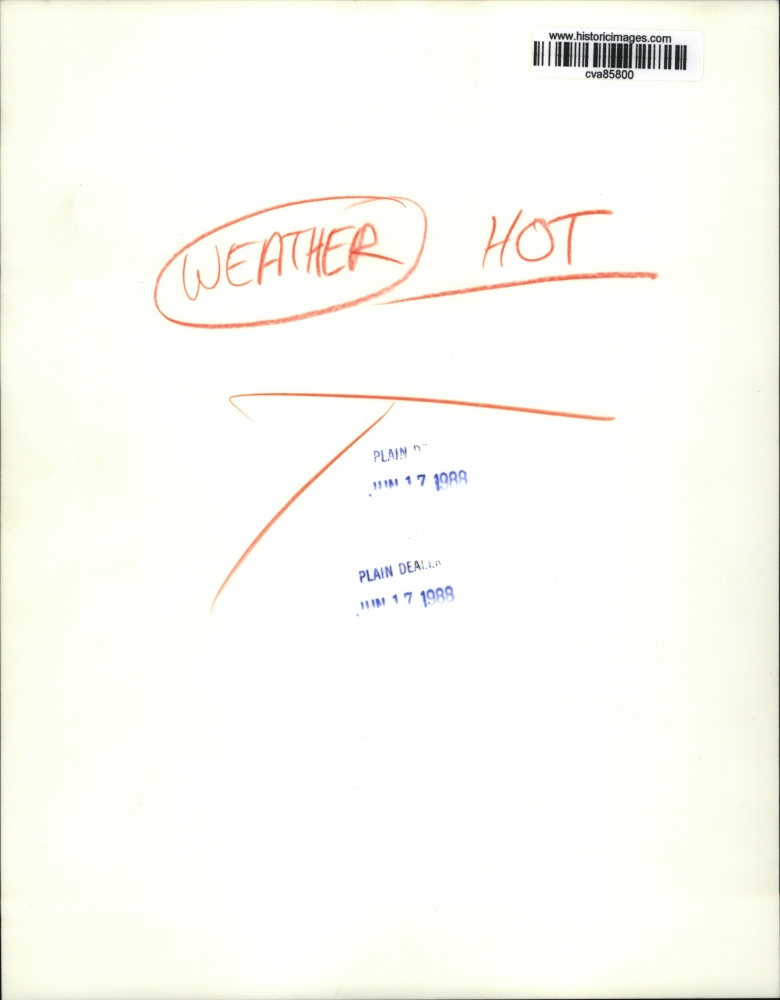 www.historicimages.com
cva85800
WEATHER HOT
PLAIN
JUN 17 1988
PLAIN DEALER
JUN 17 1988